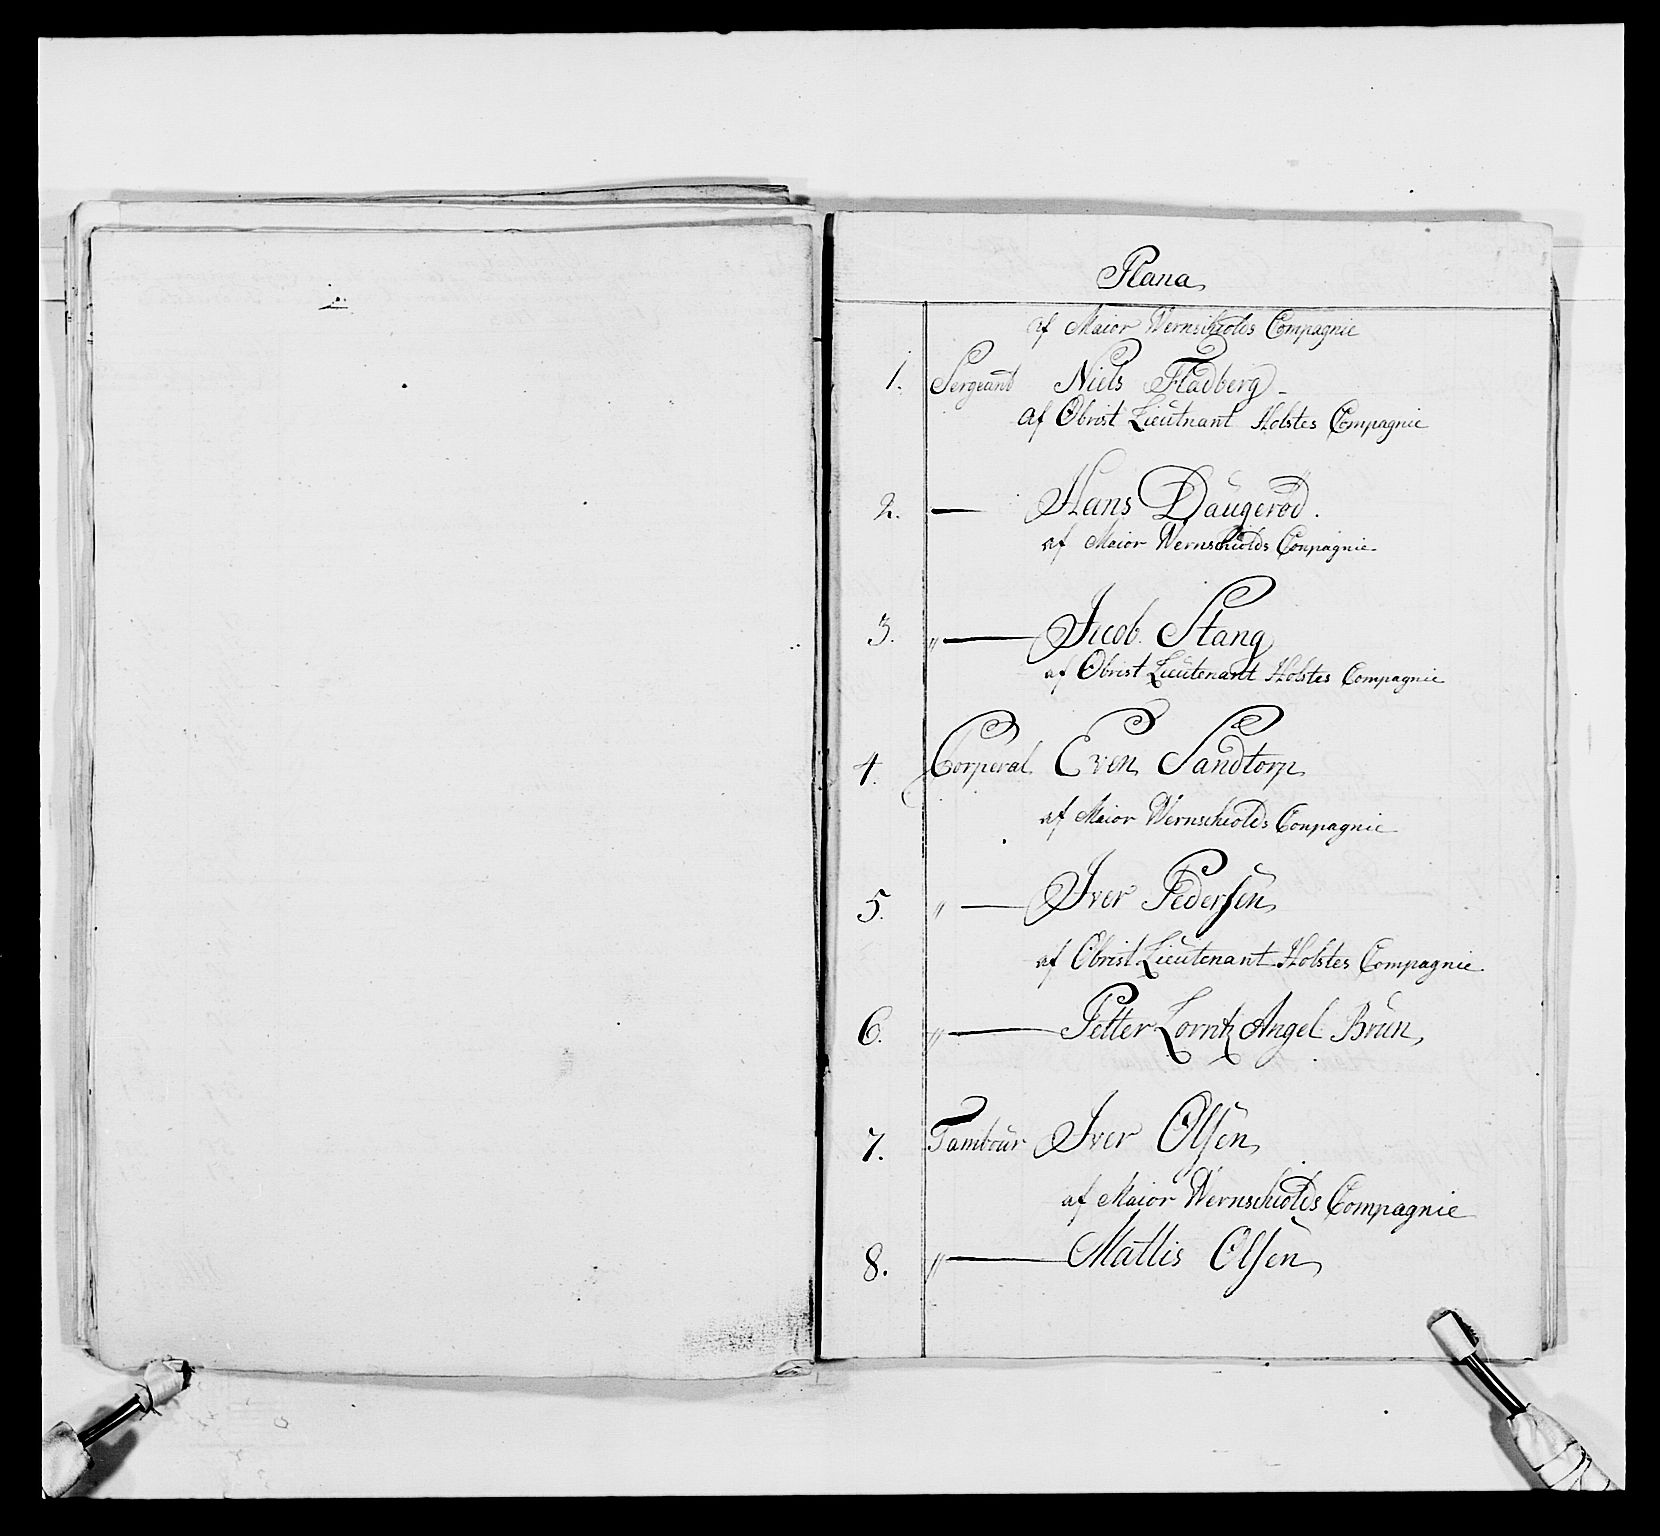 Plana
af Maior Wernschiolds Compagnie
1. Sergeant Niels Fladberg
af Obrist Lieutnant Holstes Compagnie
2. — Hans Daugerød.
af Maior Wernschiolds Conpagnie
3. " — Jacob Stang
af Obrist Lieutenant Holstes Compagnie
4. Corperal Even Sandtorp
af Maior Wernschiolds Conpagnie
5. " — Iver Pedersen
af Obrist Lieutenant Holstes Compagnie
6. " — Petter Lorntz Angel Brun
7. Tambour Iver Olsen
af Maior Wernschiolds Compagnie
8. " — Mattis Olsen